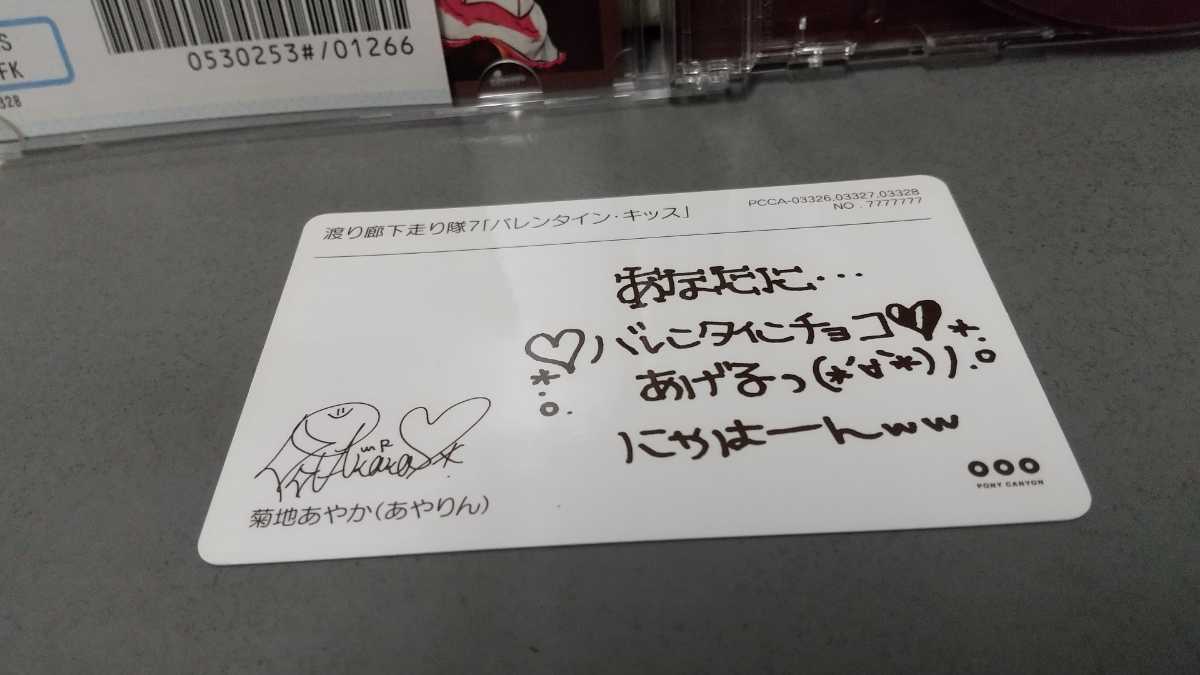 S
FK
328
0530253#/01266
渡り廊下走り隊7「バレンタイン・キッス」
PCCA-03326,03327,03328
NO . 7777777
あなたに…
♡バレンタインチョコ♥*.
*.あげるっ(*´∀`*)ノ.o
o.
にゃはーんww
菊地あやか(あやりん)
PONY CANYON